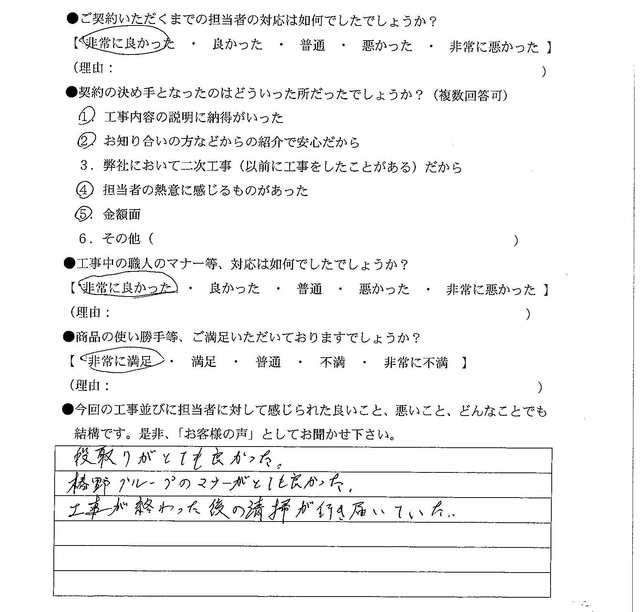 ●ご契約いただくまでの担当者の対応は如何でしたでしょうか？
【 非常に良かった ・ 良かった ・ 普通 ・ 悪かった ・ 非常に悪かった 】
（理由： ）
●契約の決め手となったのはどういった所だったでしょうか？（複数回答可）
①．工事内容の説明に納得がいった
②．お知り合いの方などからの紹介で安心だから
３．弊社において二次工事（以前に工事をしたことがある）だから
④．担当者の熱意に感じるものがあった
⑤．金額面
６．その他（ ）
●工事中の職人のマナー等、対応は如何でしたでしょうか？
【 非常に良かった ・ 良かった ・ 普通 ・ 悪かった ・ 非常に悪かった 】
（理由： ）
●商品の使い勝手等、ご満足いただいておりますでしょうか？
【 非常に満足 ・ 満足 ・ 普通 ・ 不満 ・ 非常に不満 】
（理由： ）
●今回の工事並びに担当者に対して感じられた良いこと、悪いこと、どんなことでも
結構です。是非、「お客様の声」としてお聞かせ下さい。
段取りがとても良かった。
椿野グループのマナーがとても良かった。
工事が終わった後の清掃が行き届いていた。